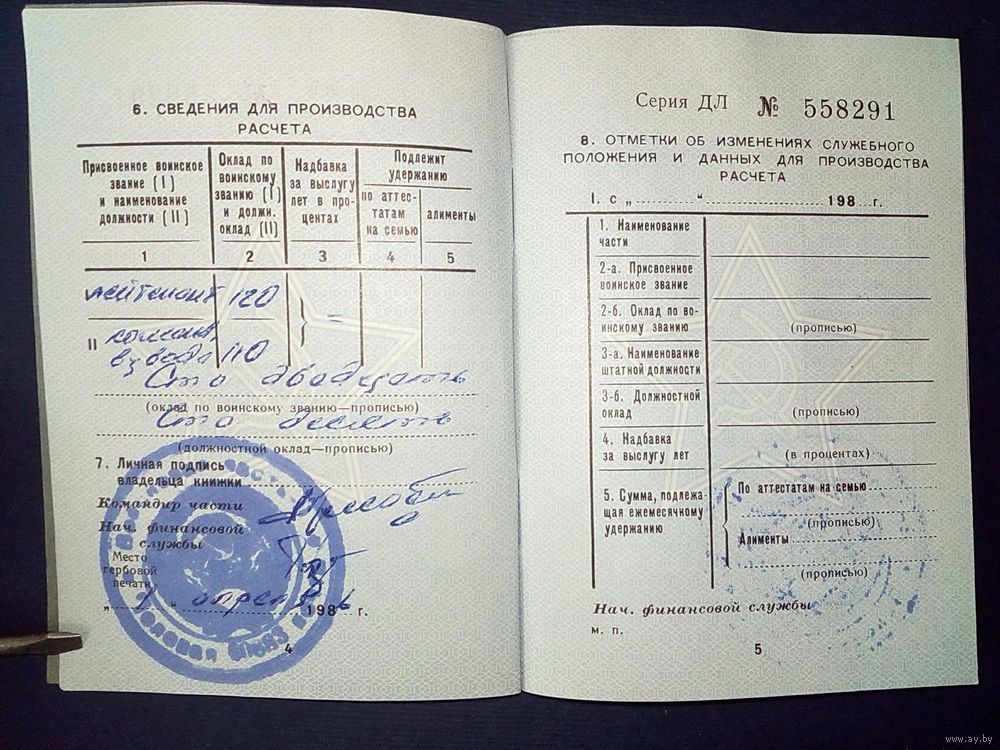 6. СВЕДЕНИЯ ДЛЯ ПРОИЗВОДСТВА
РАСЧЕТА
Присвоенное воинское
звание (I)
и наименование
должности (II)
Оклад по
воинскому
званию (I)
и должн.
оклад (II)
Надбавка
за выслугу
лет в про-
центах
Подлежит
удержанию
по аттес-
татам
на семью
алименты
1 2 3 4 5
лейтенант 120
II
взвода 110
Сто двадцать
(оклад по воинскому званию—прописью)
Сто десять
(должностной оклад—прописью)
7. Личная подпись
владельца книжки
Командир части
Нач. финансовой
службы
Место
гербовой
печати
„ 1 " апреля 1986 г.
4
Серия ДЛ № 558291
8. ОТМЕТКИ ОБ ИЗМЕНЕНИЯХ СЛУЖЕБНОГО
ПОЛОЖЕНИЯ И ДАННЫХ ДЛЯ ПРОИЗВОДСТВА
РАСЧЕТА
I. с „...........“.....................198...г.
1. Наименование
части
2-а. Присвоенное
воинское звание
2-б. Оклад по во-
инскому званию
(прописью)
3-а. Наименование
штатной должности
3-б. Должностной
оклад
(прописью)
4. Надбавка
за выслугу лет
(в процентах)
5. Сумма, подлежа-
щая ежемесячному
удержанию
По аттестатам на семью
(прописью)
Алименты
(прописью)
Нач. финансовой службы
м. п.
5
www.ay.by